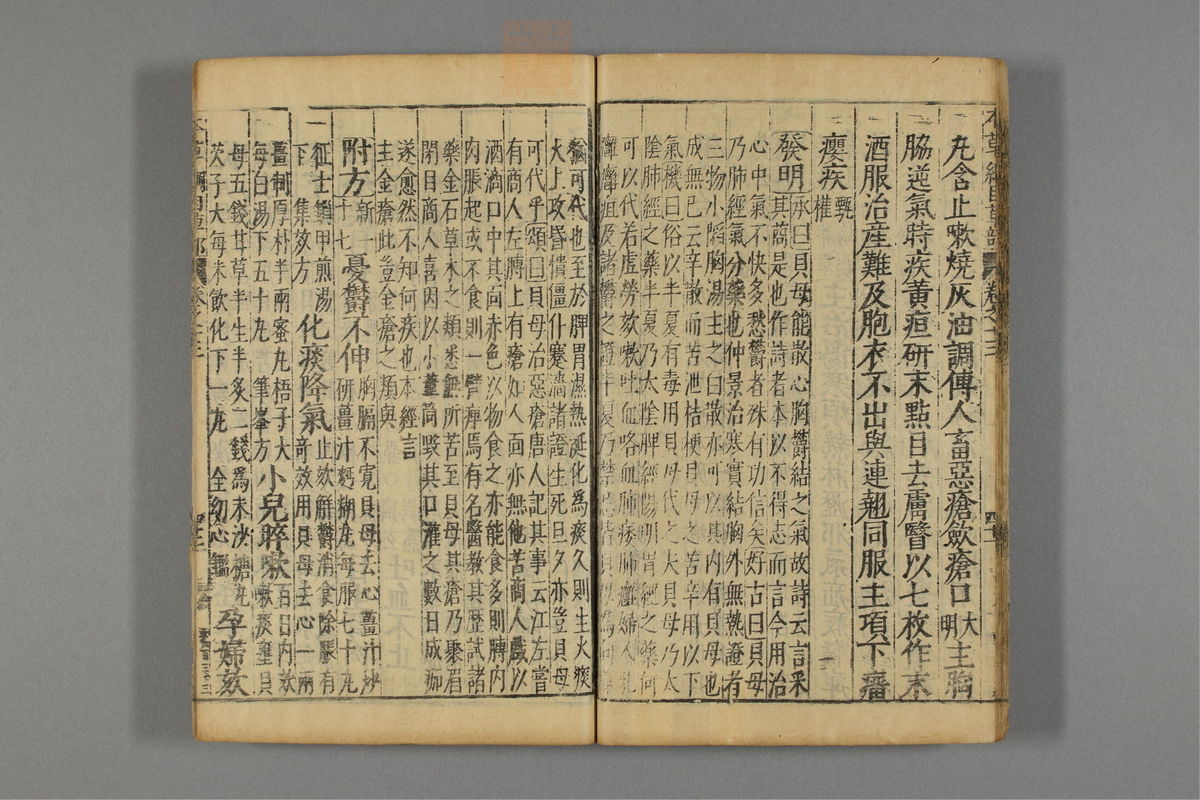 本草綱目草部 卷之十三
丸含止嗽燒灰油調傅人畜惡瘡歛瘡口大明主胸
脇逆氣時疾黃疸研末點目去膚瞖以七枚作末
酒服治産難及胞衣不出與連翹同服主項下瘤
癭疾甄權
發明承曰貝母能散心胸鬱結之氣故詩云言采
其莔是也作詩者本以不得志而言今用治
心中氣不快多愁鬱者殊有功信矣好古曰貝母
乃肺經氣分藥也仲景治寒實結胸外無熱證者
三物小陷胸湯主之白散亦可以其內有貝母也
成無已云辛散而苦泄桔梗貝母之苦辛用以下
氣機曰俗以半夏有毒用貝母代之夫貝母乃太
陰肺經之藥半夏乃太陰脾經陽明胃經之藥何
可以代若虛勞欬嗽吐血咯血肺痿肺癰婦人乳
癰癰疽及諸鬱之證半夏乃禁忌皆貝母爲向
猶可代也至於脾胃濕熱涎化爲痰久則生火痰
火上攻昏憒僵仆蹇濇諸證生死旦夕亦豈貝母
可代乎頌曰貝母治惡瘡唐人記其事云江左嘗
有商人左膊上有瘡如人面亦無他苦商人戲以
酒滴口中其面赤色以物食之亦能食多則膊內
肉脹起或不食則一臂痺焉有名醫教其歷試諸
藥金石草木之類悉無所苦至貝母其瘡乃聚眉
閉目商人喜因以小葦筒毀其口灌之數日成痂
遂愈然不知何疾也本經言
主金瘡此豈金瘡之類與
附方新十七憂鬱不伸胸膈不寬貝母去心薑汁炒
研薑汁麪糊丸每服七十丸
征士鎖甲煎湯
下 集效方化痰降氣止欬解鬱消食除脹有
奇效用貝母去心一兩
薑制厚朴半兩蜜丸梧子大
每白湯下五十丸 筆峯方小兒晬嗽百日內欬
嗽痰壅貝
母五錢甘草半生半炙二錢爲末沙糖丸
芡子大每米飲化下一丸 全幼心鑑孕婦欬
本草綱目草部 卷之十三